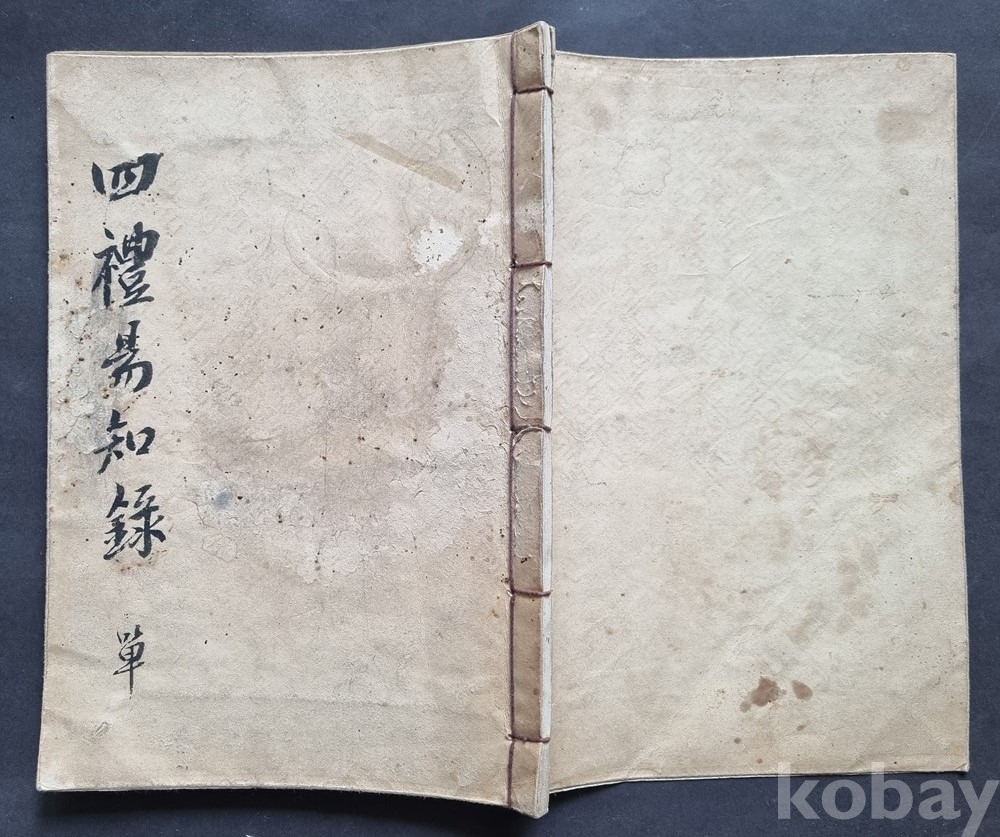 四禮易知錄 單
kobay